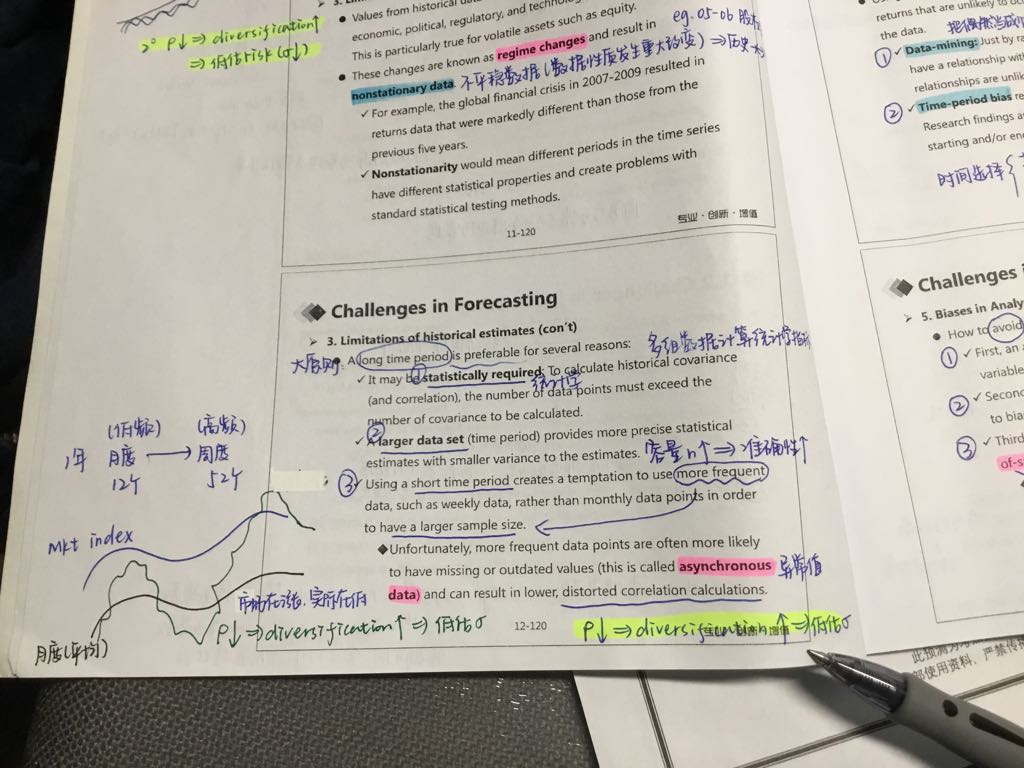 2° ρ↓ ⇒ diversification↑
⇒ 低估risk(σ↓)
Values from historical
economic, political, regulatory, and
This is particularly true for volatile assets such as equity.
These changes are known as regime changes and result in
eg. 05-06
nonstationary data. 不平稳数据(数据性质发生重大改变) ⇒ 历史
✓ For example, the global financial crisis in 2007-2009 resulted in
returns data that were markedly different than those from the
previous five years.
✓ Nonstationarity would mean different periods in the time series
have different statistical properties and create problems with
standard statistical testing methods.
11-120
专业·创新·增值
Challenges in Forecasting
3. Limitations of historical estimates (con't)
大原则: A long time period is preferable for several reasons: 多组数据计算统计学指标
① ✓ It may be statistically required: To calculate historical covariance
统计学
(and correlation), the number of data points must exceed the
number of covariance to be calculated.
② ✓ A larger data set (time period) provides more precise statistical
estimates with smaller variance to the estimates. 容量n↑ ⇒ 准确性↑
③ Using a short time period creates a temptation to use more frequent
data, such as weekly data, rather than monthly data points in order
to have a larger sample size.
◆Unfortunately, more frequent data points are often more likely
to have missing or outdated values (this is called asynchronous 异常值
data) and can result in lower, distorted correlation calculations.
(低频) (高频)
1年 月度 → 周度
12个 52个
Mkt index
市场在涨, 实际在
ρ↓ ⇒ diversification↑ ⇒ 低估σ
月度(平均)
12-120
ρ↓ ⇒ diversification↑ ⇒ 低估σ
returns that are unlikely to
the data.
① ✓ Data-mining: Just by
have a relationship
relationships are
② ✓ Time-period bias
Research findings
starting and/or
时间选择
Challenges
5. Biases in
How to avoid
① ✓ First, an
variable
② ✓ Second
to
③ ✓ Third
部使用资料，严禁传